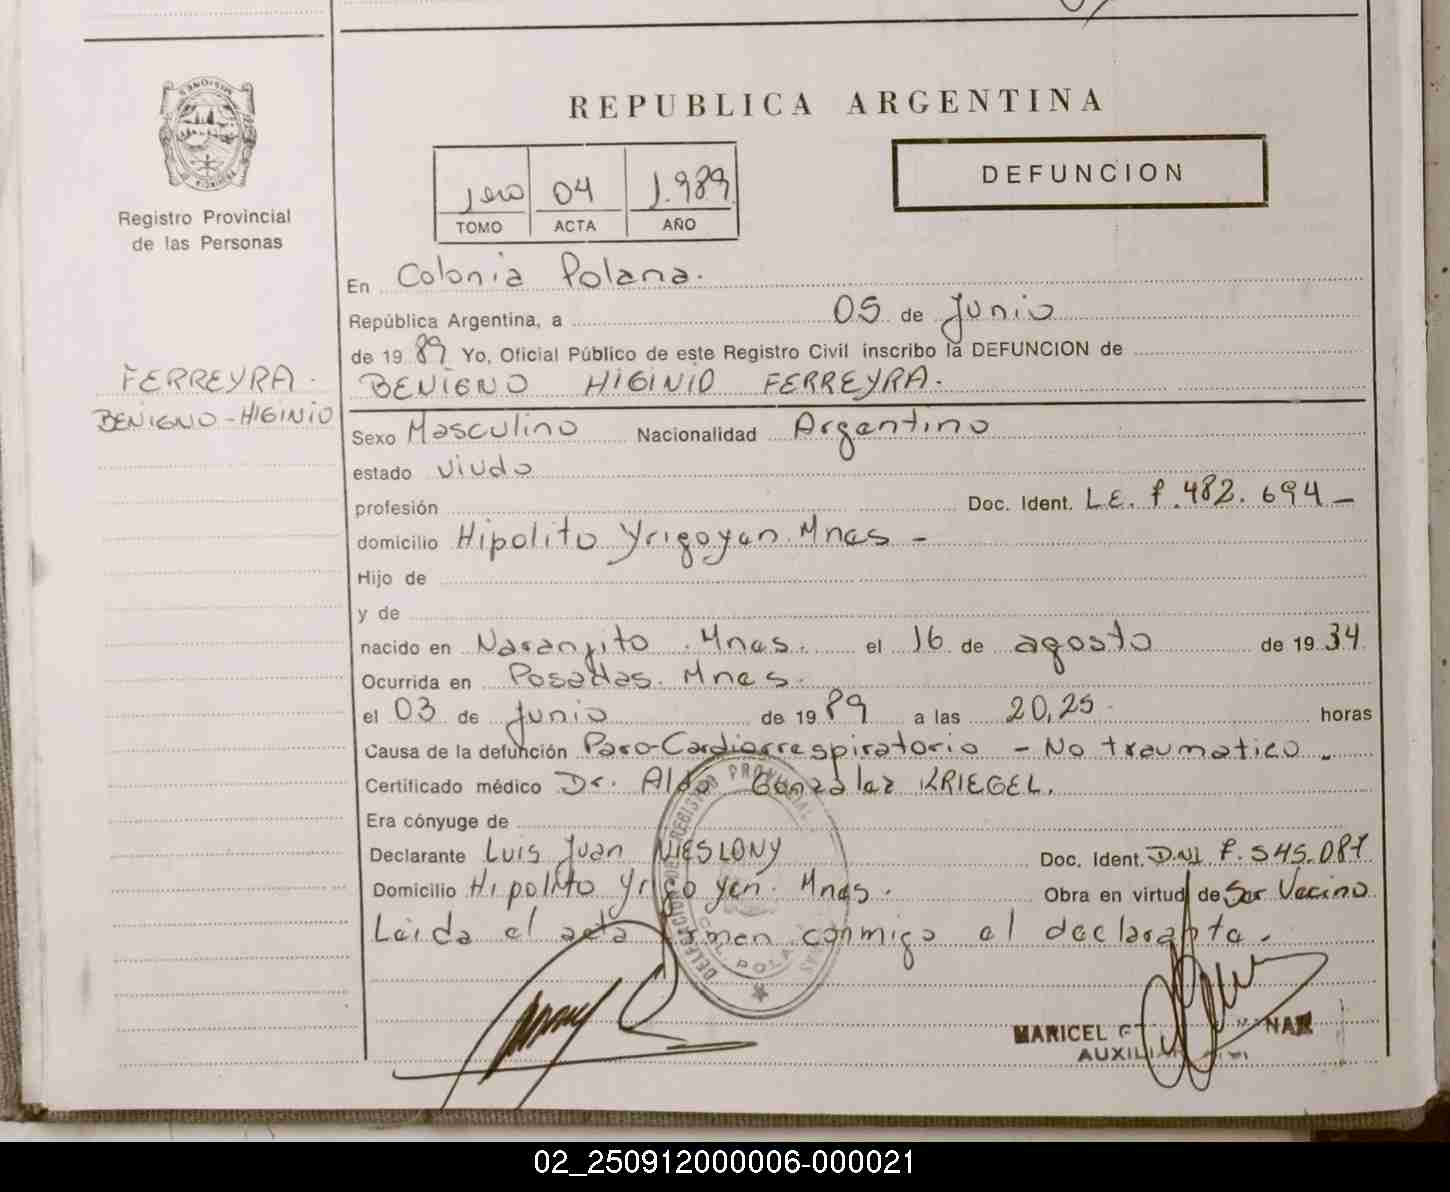 REPUBLICA ARGENTINA
DEFUNCION
1ero 04 1.989
TOMO ACTA AÑO
MISIONES
PROVINCIA DE
Registro Provincial
de las Personas
FERREYRA.
BENIGNO-HIGINIO
En Colonia Polana.
República Argentina, a 05 de Junio
de 19 89 Yo, Oficial Público de este Registro Civil inscribo la DEFUNCION de
BENIGNO HIGINIO FERREYRA.
Sexo Masculino Nacionalidad Argentino
estado viudo
profesión Doc. Ident. L.E. 7.482.694_
domicilio Hipolito Yrigoyen. Mnes -
Hijo de
y de
nacido en Naranjito. Mnes. el 16 de agosto de 19 34
Ocurrida en Posadas. Mnes.
el 03 de Junio de 19 89 a las 20,25. horas
Causa de la defunción Paro-Cardiorrespiratorio - No traumatico_
Certificado médico Dr. Aldo Gonzalez KRIEGEL.
Era cónyuge de
Declarante Luis Juan NIESLONY Doc. Ident. D.NI 7.545.087
Domicilio Hipolito Yrigoyen. Mnes. Obra en virtud de Ser Vecino
Leida el acta firman conmigo el declarante.
DELEGACION DE REGISTRO PROVINCIAL
COL. POLANA
MARICEL
AUXILIAR
02_250912000006-000021